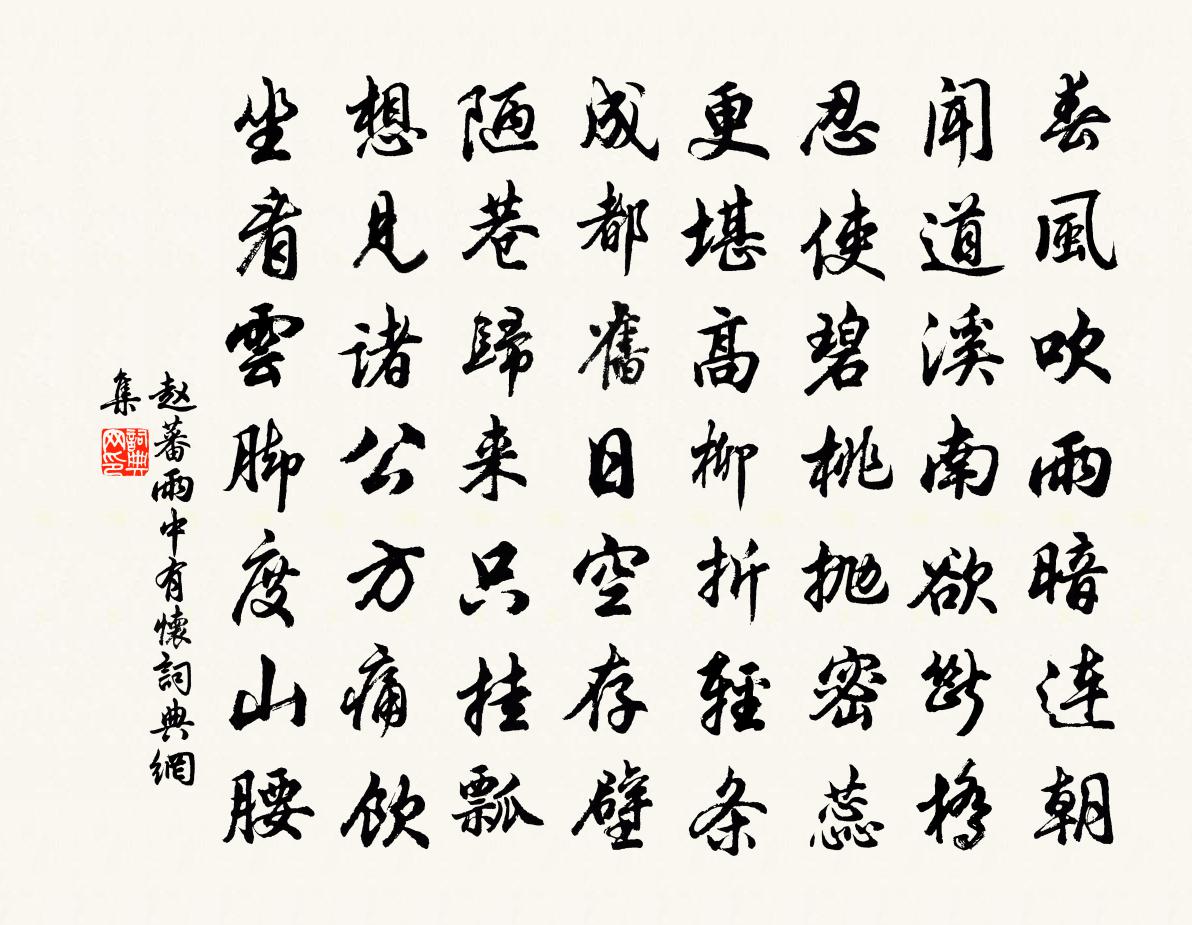 春風吹雨暗连朝
闻道溪南欲斷橋
忍使碧桃抛密蕊
更堪高柳折輕条
成都舊日空存壁
陋巷歸来只挂瓢
想見诸公方痛飲
坐看雲脚度山腰
赵蕃雨中有懷詞典網
集
詞典网印